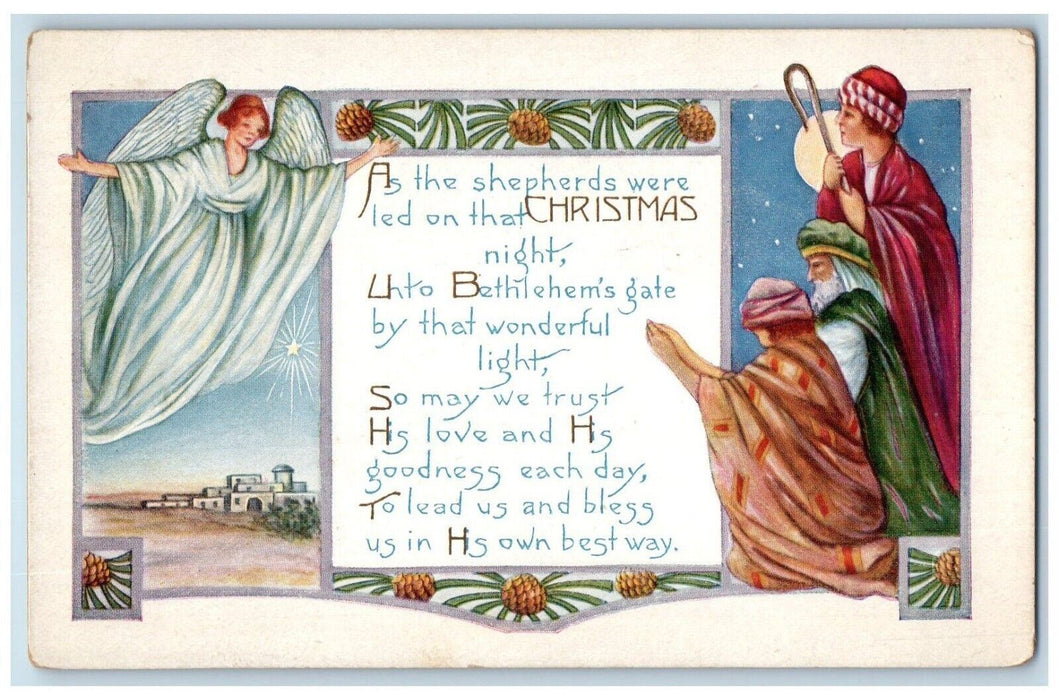 As the shepherds were
led on that CHRISTMAS
night,
Unto Bethlehem's gate
by that wonderful
light,
So may we trust
His love and His
goodness each day,
To lead us and bless
us in His own best way.